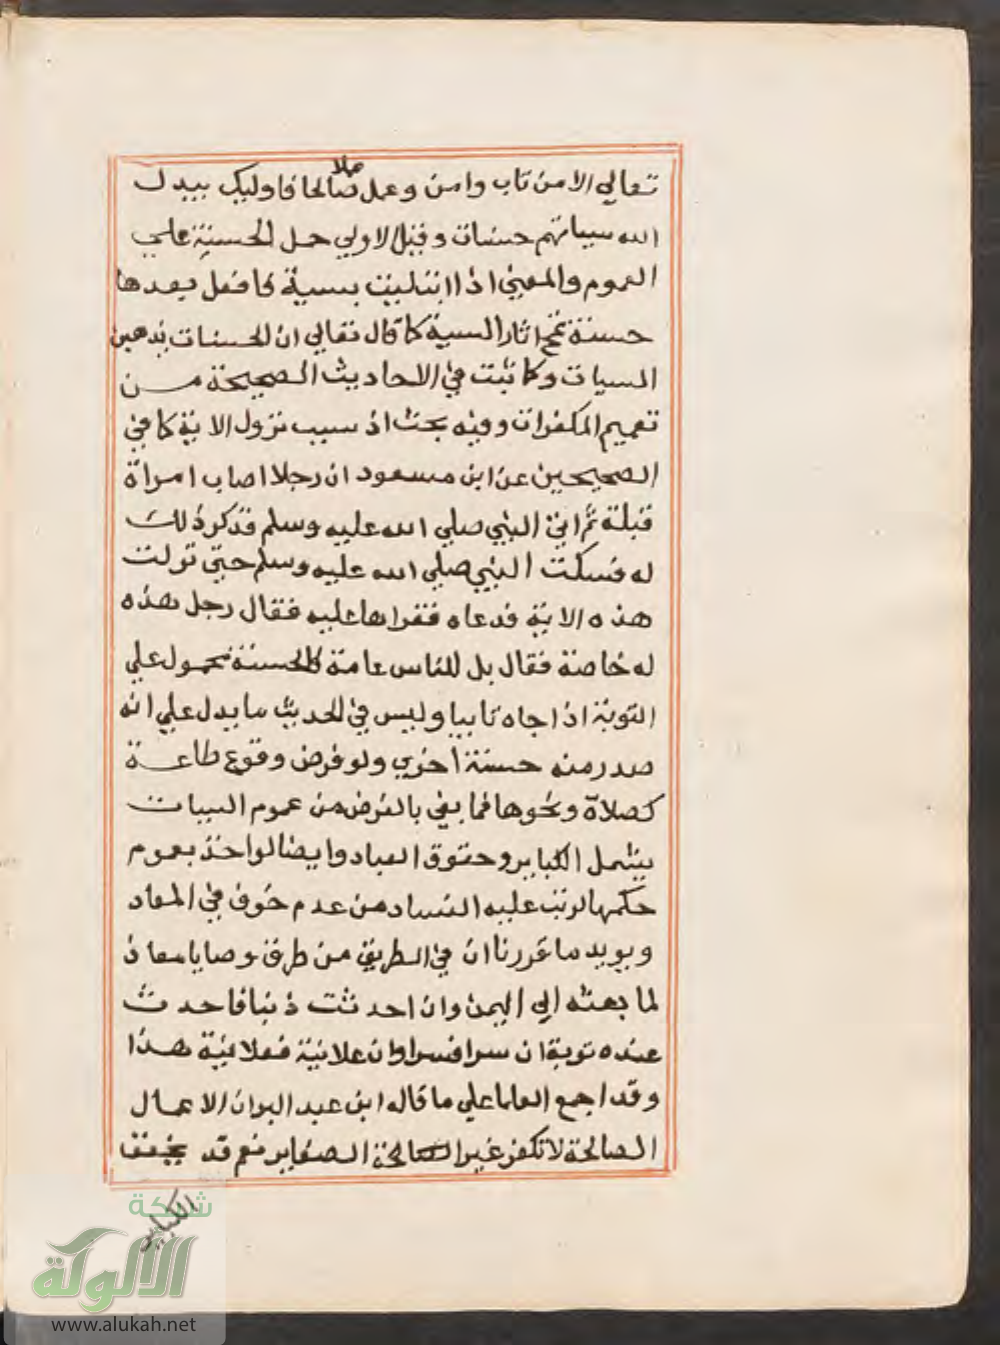 تعالي الا من تاب وامن وعمل عملا صالحا فاوليك يبدل
الله سيياتهم حسنات وقيل الاولي حمل الحسنة علي
العموم والمعني اذا ابتليت بسيية كا فعل بعدها
حسنة تمح اثار السيية كا قال تعالي ان الحسنات يذهبن
السيات وكا ثبت في الاحاديث الصحيحة من
تعميم المكفرات وفيه بحث اذ سبب نزول الاية كا في
الصحيحين عن ابن مسعود ان رجلا اصاب امراة
قبلة ثم اتي النبي صلي الله عليه وسلم فذكر ذلك
له فسكت النبي صلي الله عليه وسلم حتي نولت
هذه الاية فدعاه فقراها عليه فقال رجل هذه
له خاصة فقال بل للناس عامة فالحسنة محمول علي
التوبة اذا جاه تايبا وليس في الحديث ما يدل علي انه
صدر منه حسنة اخري ولو فرض وقوع طاعة
كصلاة ونحوها فما بقي بالغرض من عموم السيات
يشمل الكباير وحقوق العباد وايضا لو اخذ بعموم
حكمها لرتب عليه الفساد من عدم خوف في المعاد
ويويد ما قررنا ان في الطريق من طرق وصايا معاذ
لما بعثه الي اليمن وان احدثت ذنبا فاحدث
عنده توبة ان سرا فسرا وان علانية فعلانية هذا
وقد اجمع العلما علي ما قاله ابن عبد البر ان الاعمال
الصالحة لا تكفر غير الصغاير نعم قد يخفف
الكباير
شبكة
الألوكة
www.alukah.net